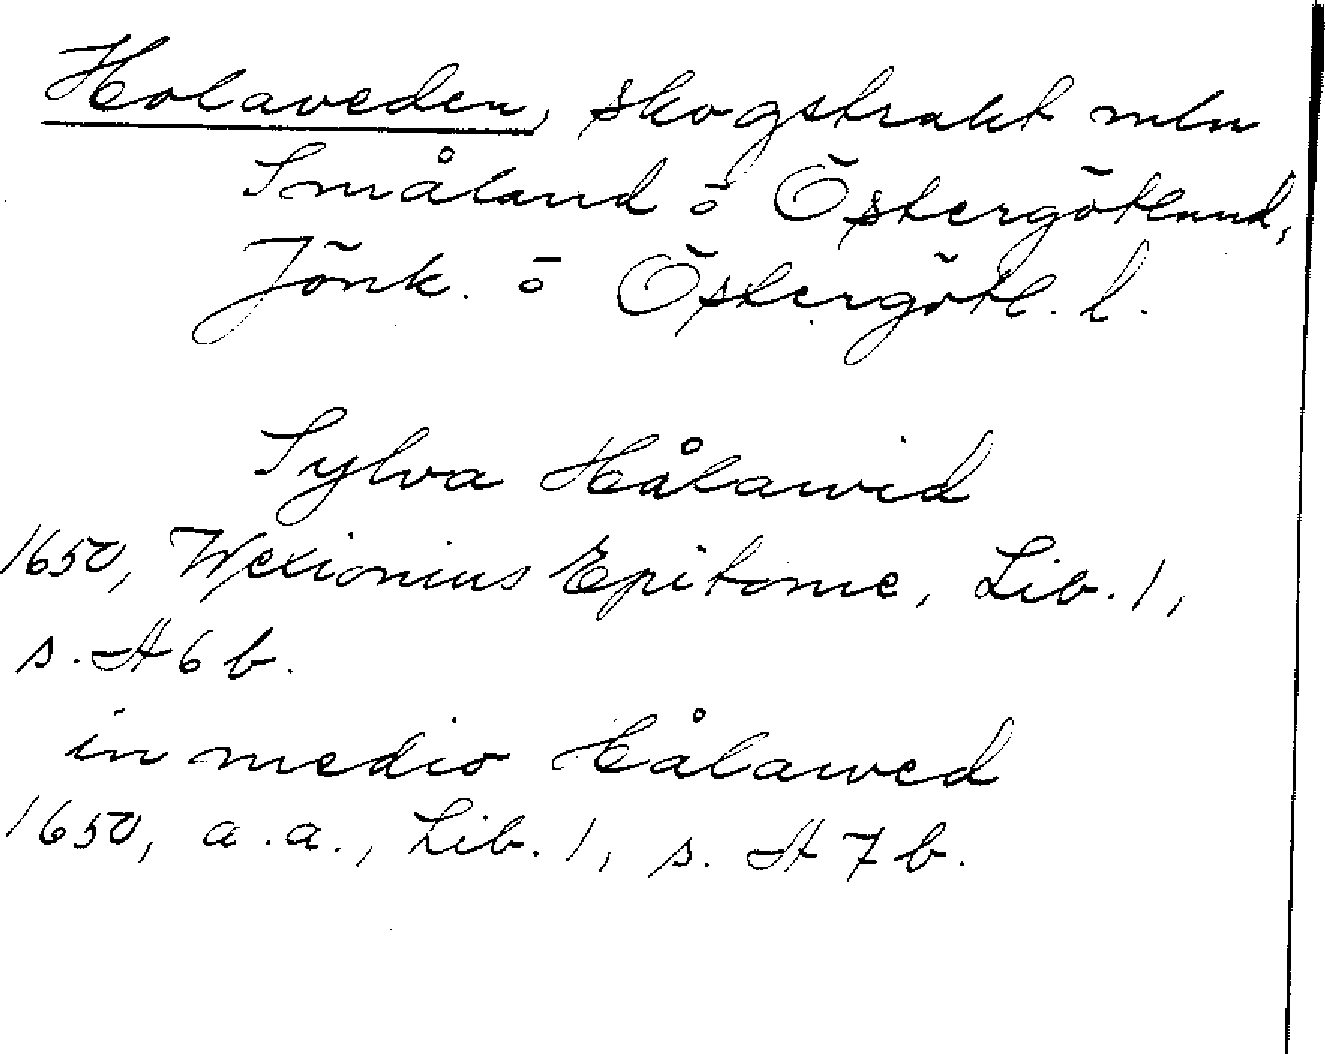 Holaveden, skogstrakt mln
Småland o Östergötland,
Jönk. o Östergötl. l.
Sylva Hålawid
1650, Wexionius Epitome, Lib. 1,
s. A 6 b.
in medio Hålawed
1650, a.a., Lib. 1, s. A 7 b.